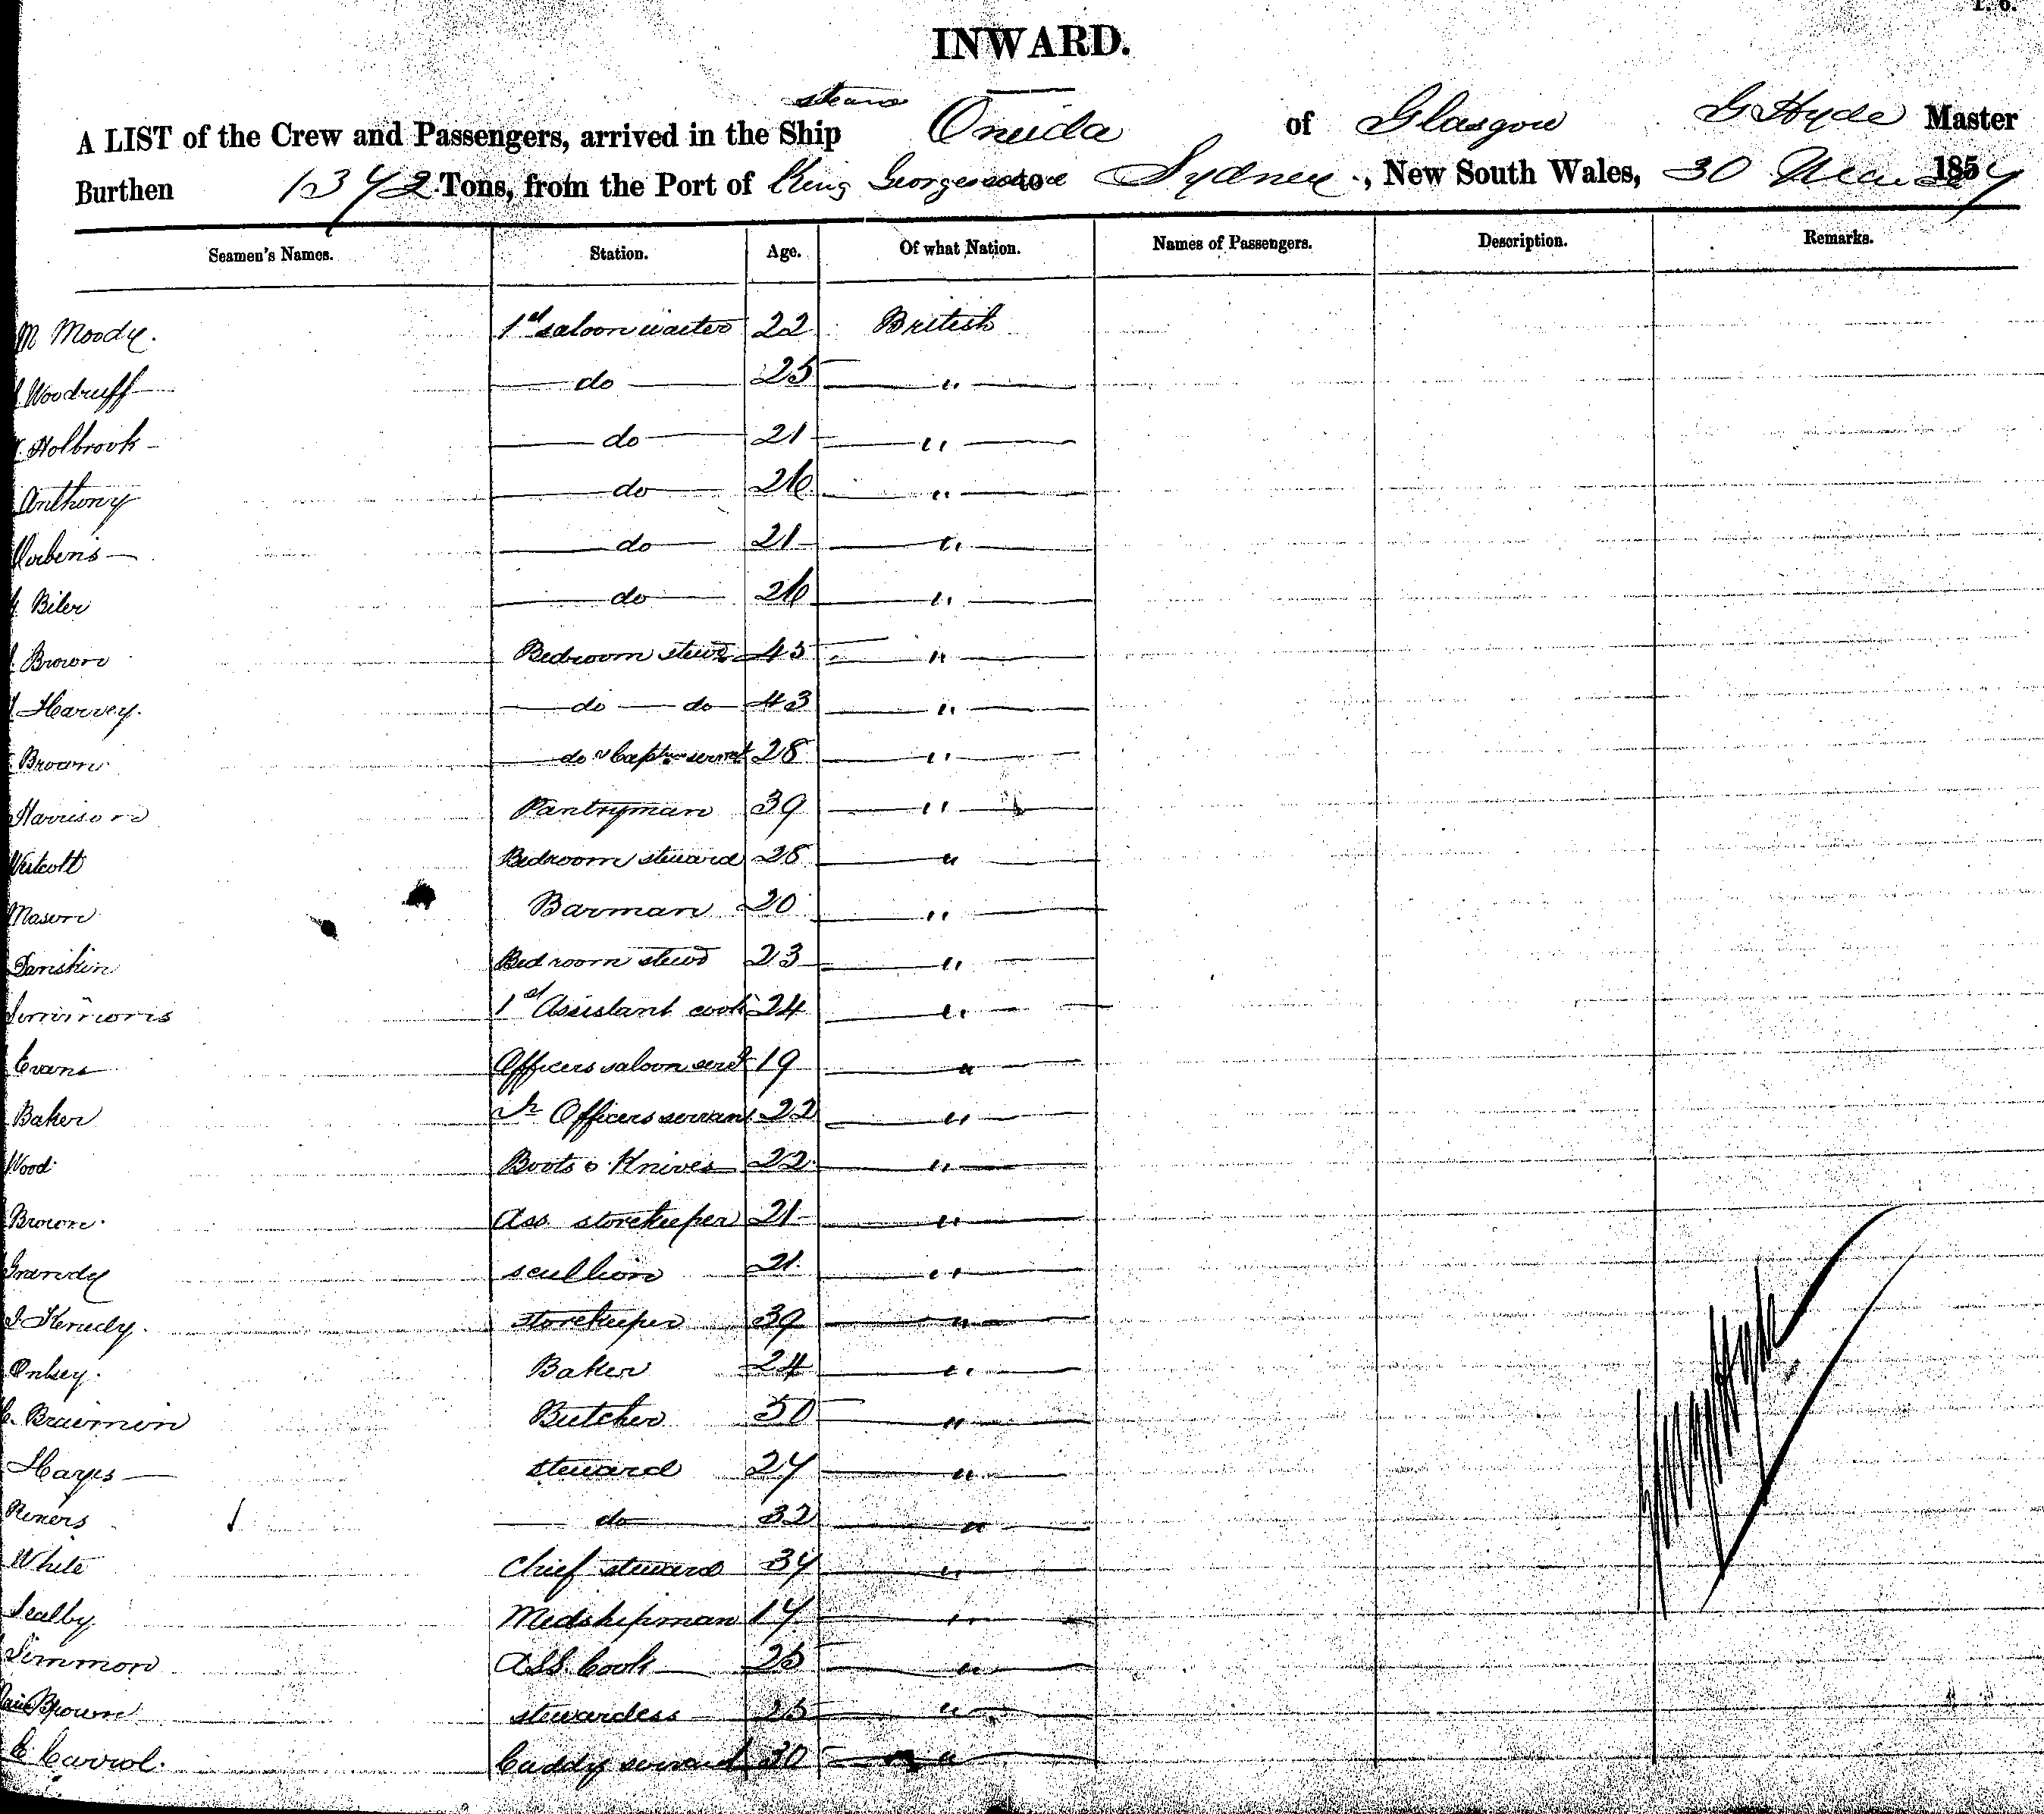 INWARD.
steam
A LIST of the Crew and Passengers, arrived in the Ship Oneida of Glasgow G Hyde Master
Burthen 1372 Tons, from the Port of King Georges to Sydney, New South Wales, 30 1857
Seamen's Names. Station. Age. Of what Nation. Names of Passengers. Description. Remarks.
M Moody. 1st saloon waiter 22 British
Woodruff do 25 "
Holbrook do 21 "
Anthony do 26 "
do 21 "
Biler do 26 "
Brown Bedroom stewd 45 "
Harvey. do do 43 "
Brown do & Captns servnt 28 "
Harrison Pantryman 39 "
Westcott Bedroom steward 28 "
Mason Barman 20 "
Danskin Bedroom stewd 23 "
Simmons 1st Assistant cook 24 "
Evans Officers saloon servt 19 "
Baker Officers servant 22 "
Wood Boots & Knives 22 "
Brown Ass storekeeper 21 "
Grandy scullion 21 "
Kenedy. storekeeper 39 "
Baker 24 "
Butcher 50 "
Hayes steward 27 "
do 32 "
White Chief steward 34 "
Scalby Midshipman 17 "
Simmon Ass. Cook 25 "
Brown stewardess 25 "
C Carrol. Cuddy servant 30 "